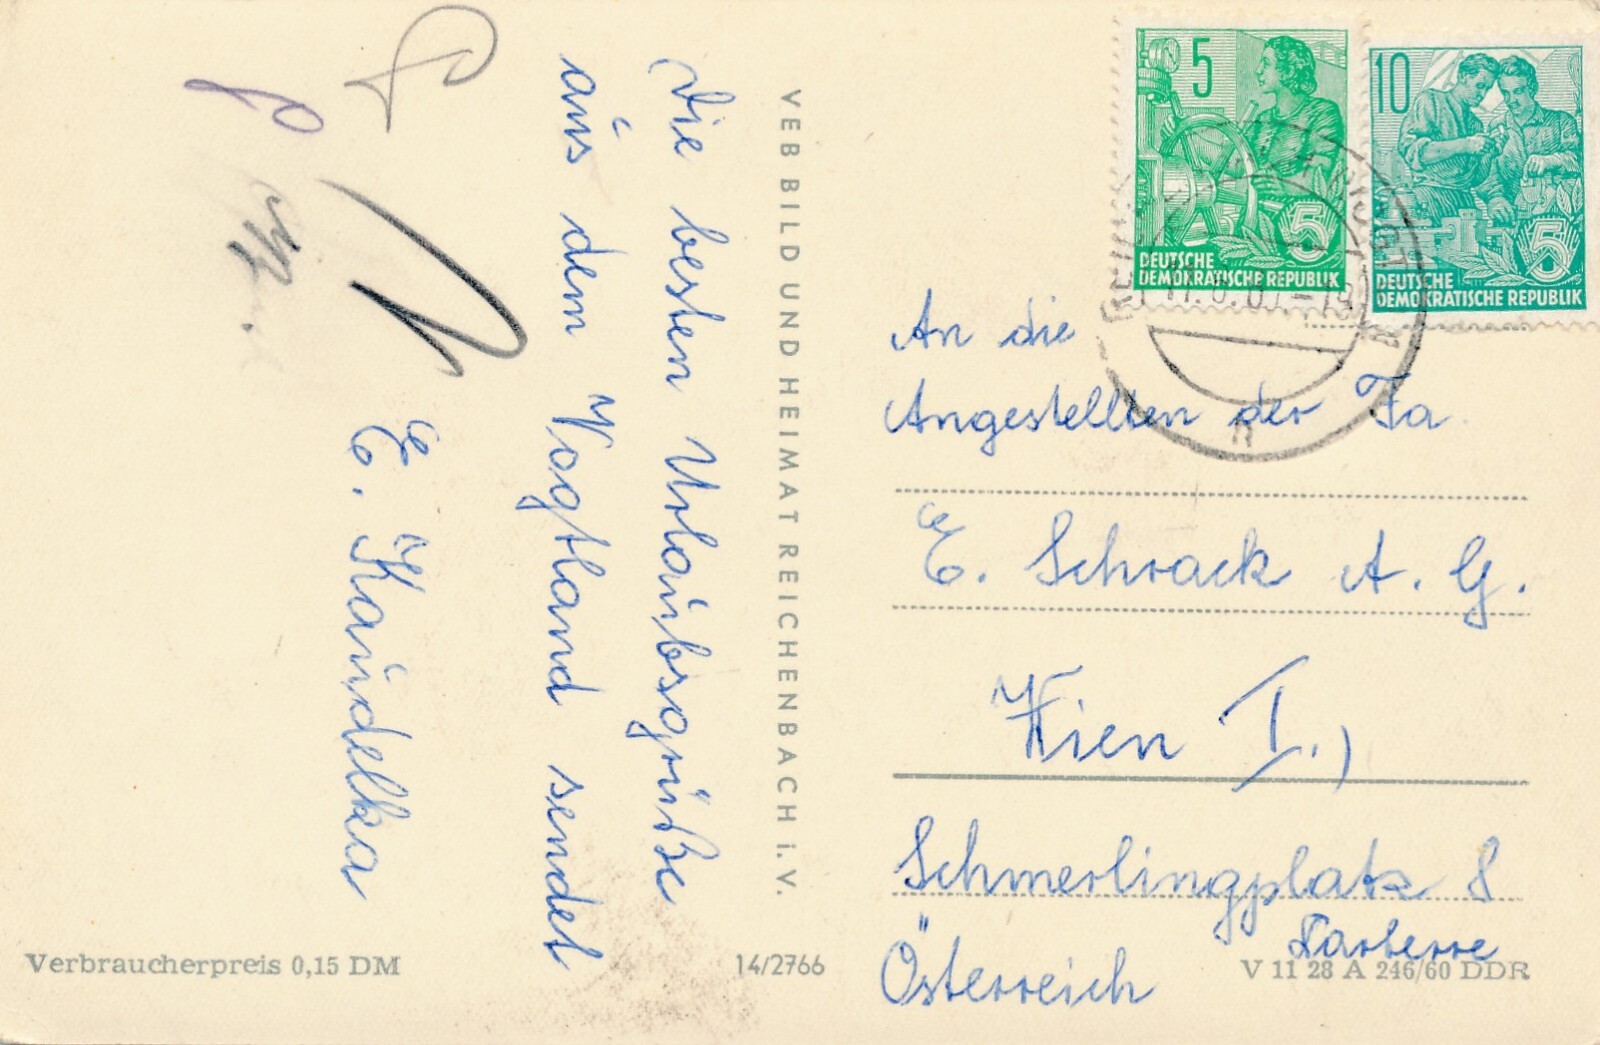 Die besten Urlaubsgrüße
aus dem Vogtland sendet
E. Kaudelka
VEB BILD UND HEIMAT REICHENBACH i. V.
Verbraucherpreis 0,15 DM
14/2766
5
DEUTSCHE
DEMOKRATISCHE REPUBLIK
10
5
DEUTSCHE
DEMOKRATISCHE REPUBLIK
5
An die
Angestellten der Fa.
E. Schrack A. G.
Wien I.)
Schmerlingplatz 8
Parterre
Österreich
V 11 28 A 246/60 DDR